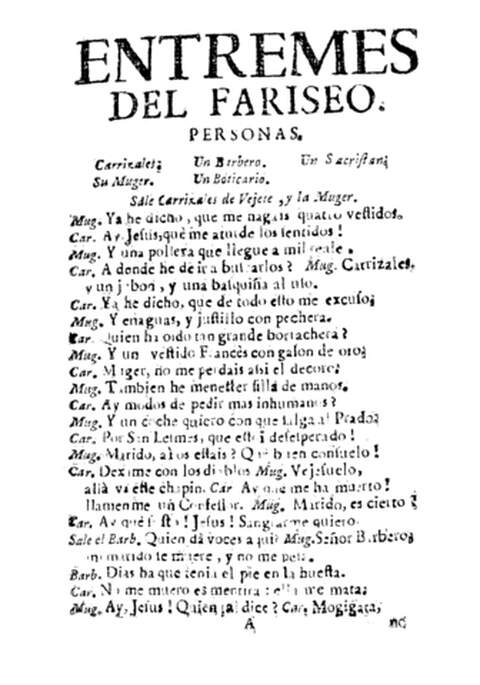 ENTREMES
DEL FARISEO.
PERSONAS.
Carrizales; Un Barbero. Un Sacristan;
Su Muger. Un Boticario.
Sale Carrizales de Vejete, y la Muger.
Mug. Ya he dicho, que me hagais quatro vestidos.
Car. Ay Jesus, què me aturde los sentidos!
Mug. Y una pollera que llegue a mil reales.
Car. A donde he de ir a buscarlos? Mug. Carrizales,
y un jubon, y una basquiña al uso.
Car. Ya he dicho, que de todo esto me excuso;
Mug. Y enaguas, y justillo con pechera.
Car. Quien ha oido tan grande borrachera?
Mug. Y un vestido Francès con galon de oro;
Car. Muger, no me perdais assi el decoro;
Mug. Tambien he menester silla de manos.
Car. Ay modos de pedir mas inhumanos?
Mug. Y un coche quiero con que salga al Prado;
Car. Por San Lesmes, que estoi desesperado!
Mug. Marido, à os estais? Què buen consuelo!
Car. Dexame con los diablos Mug. Vejesuelo,
allà và este chapin. Car Ay que me ha muerto!
llamenme un Confessor. Mug. Marido, es cierto?
Car. Ay què Jesus! Sangrarme quiero.
Sale el Barb. Quien dà voces aqui? Mug. Señor Barbero;
mi marido se muere, y no me pesa.
Barb. Dias ha que tenia el pie en la huessa.
Car. No me muero es mentira: ella me mata;
Mug. Ay, Jesus! Quien tal dice? Car. Mogigata,
A no